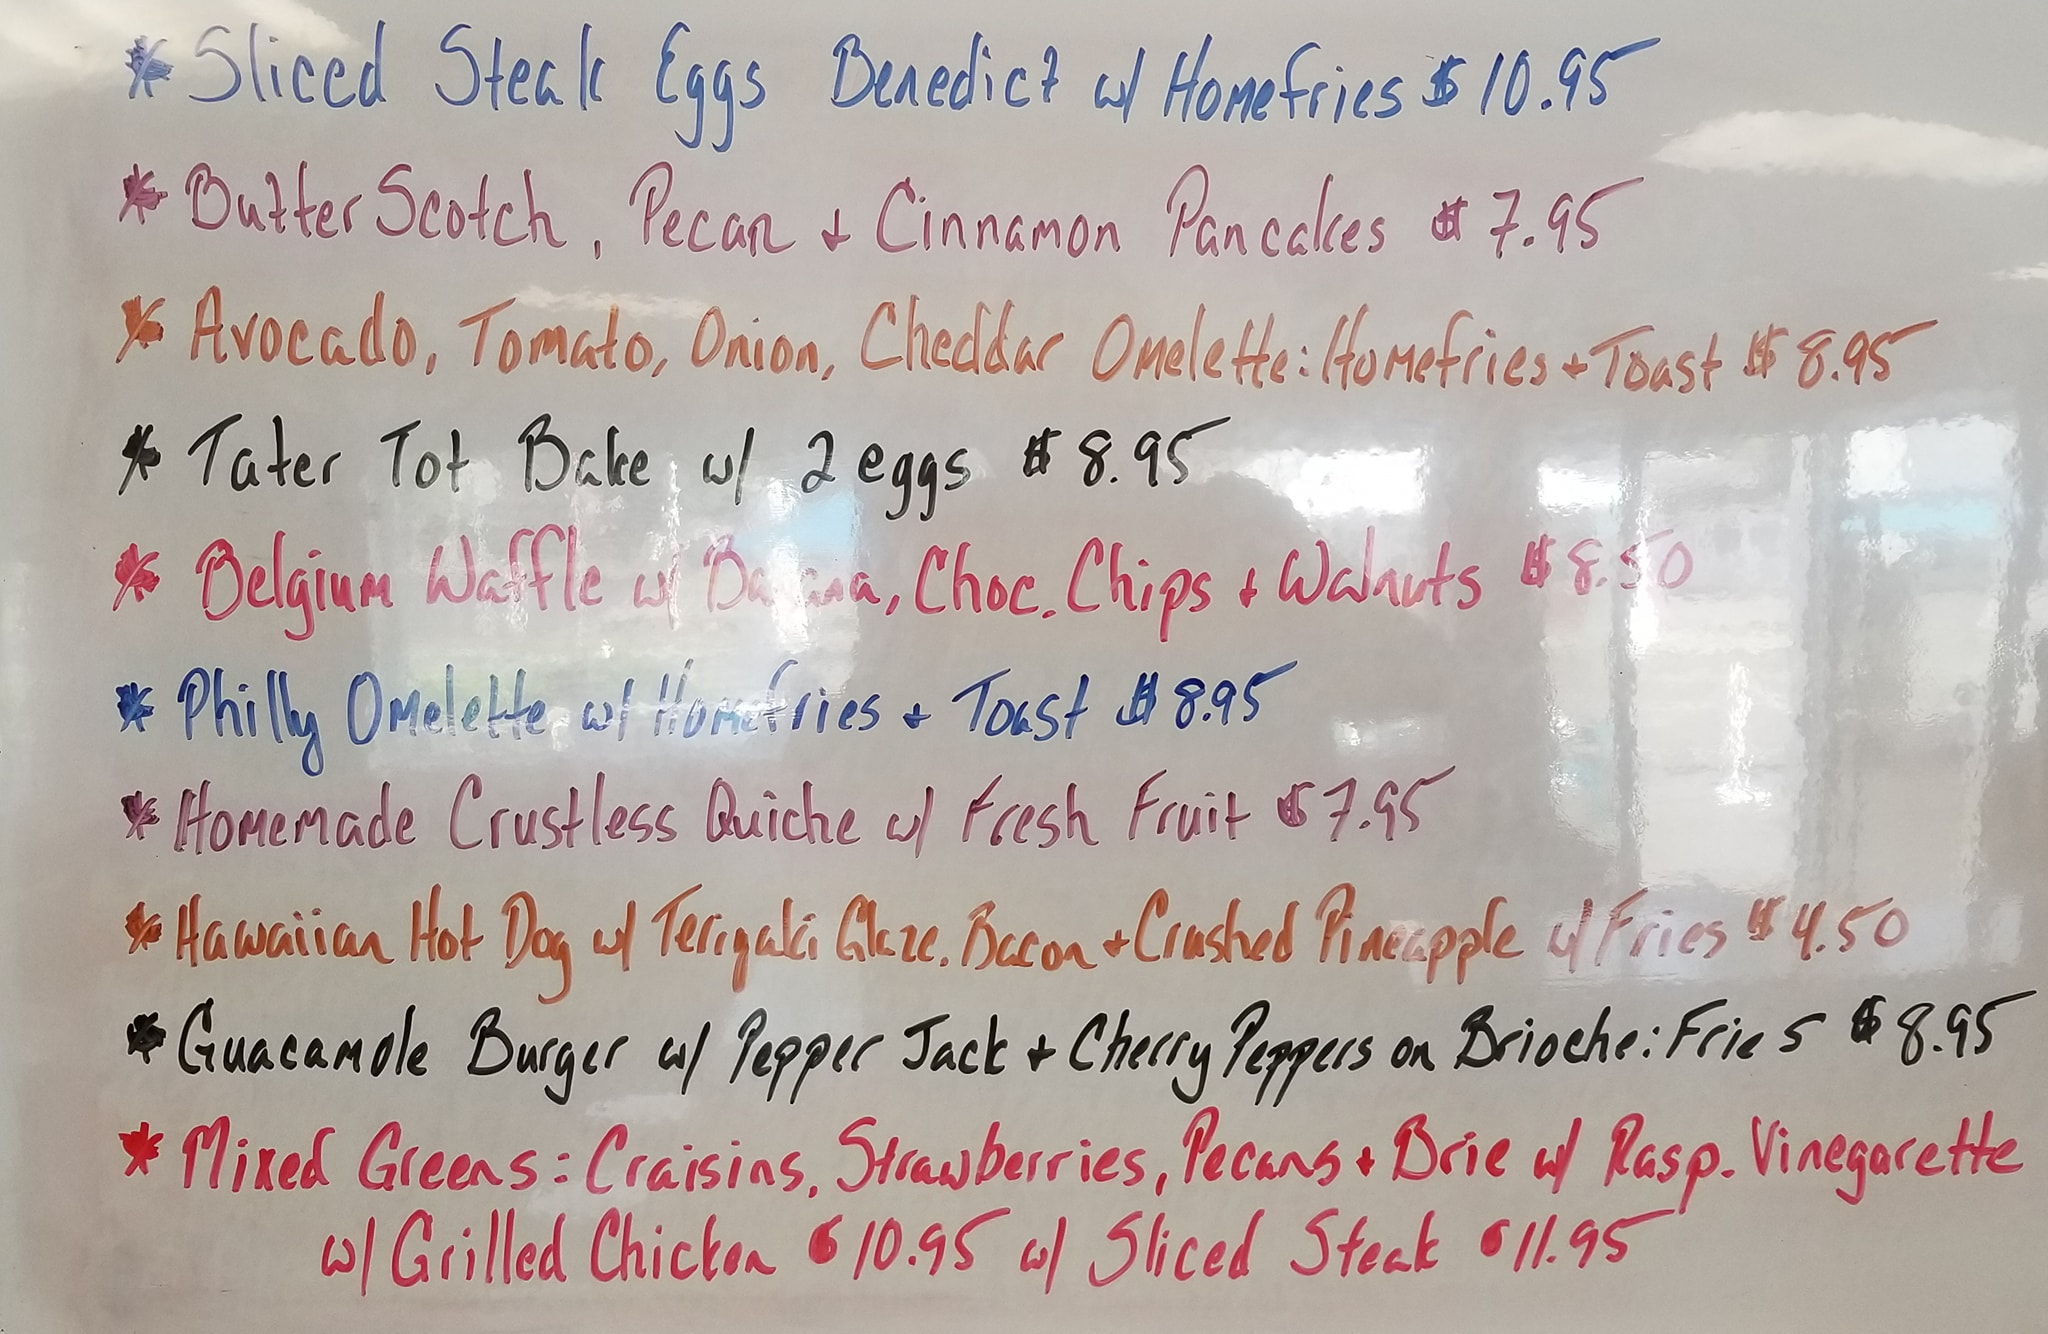 * Sliced Steak Eggs Benedict w/ Homefries $10.95
* ButterScotch, Pecan + Cinnamon Pancakes $7.95
* Avocado, Tomato, Onion, Cheddar Omelette: Homefries + Toast $8.95
* Tater Tot Bake w/ 2 eggs $8.95
* Belgium Waffle w/ Banana, Choc. Chips + Walnuts $8.50
* Philly Omelette w/ Homefries + Toast $8.95
* Homemade Crustless Quiche w/ Fresh Fruit $7.95
* Hawaiian Hot Dog w/ Teriyaki Glaze, Bacon + Crushed Pineapple w/ Fries $4.50
* Guacamole Burger w/ Pepper Jack + Cherry Peppers on Brioche: Fries $8.95
* Mixed Greens: Craisins, Strawberries, Pecans + Brie w/ Rasp. Vinegarette
w/ Grilled Chicken $10.95 w/ Sliced Steak $11.95